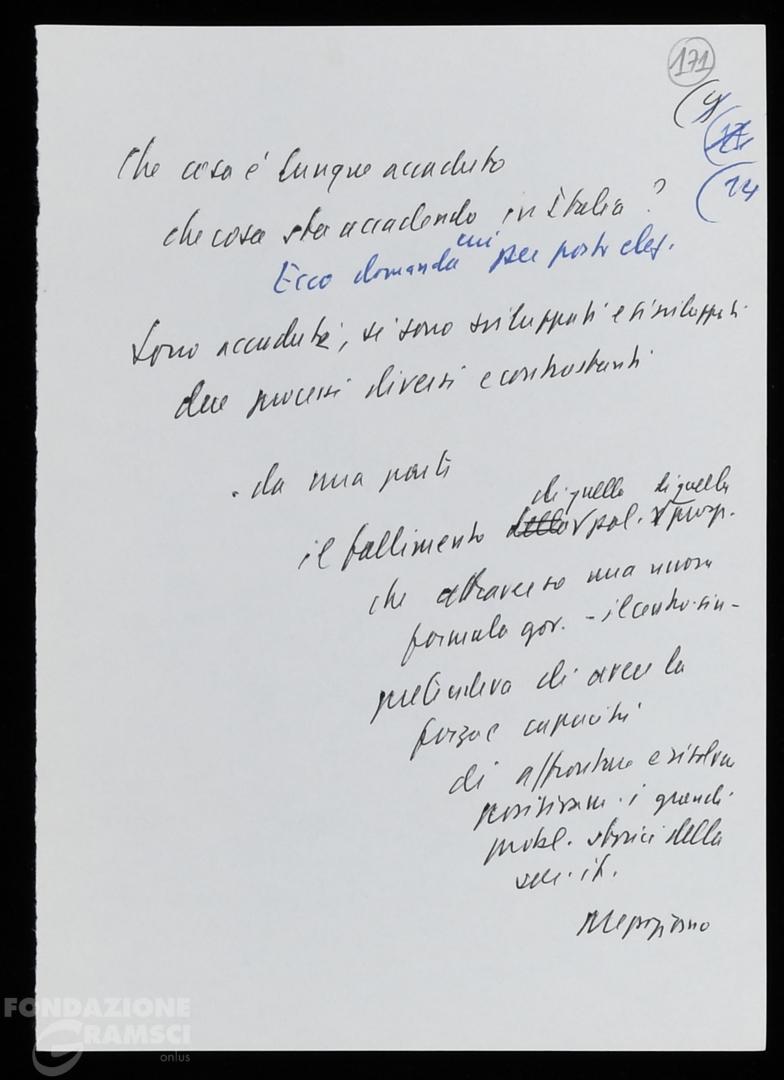 171
(4
(14
Che cosa è dunque accaduto
che cosa sta accadendo in Italia?
Ecco domanda cui per
Sono accaduti, si sono sviluppati e si sviluppati
due processi diversi e contrastanti
- da una parte
di quella di quella
il fallimento della pol. prosp.
che attraverso una nuova
formula gov. - il centro-sin -
pretendeva di avere la
forza e capacità
di affrontare e risolvere
positivam. i grandi
probl. storici della
soc. it.
Mezzogiorno
FONDAZIONE
GRAMSCI
onlus